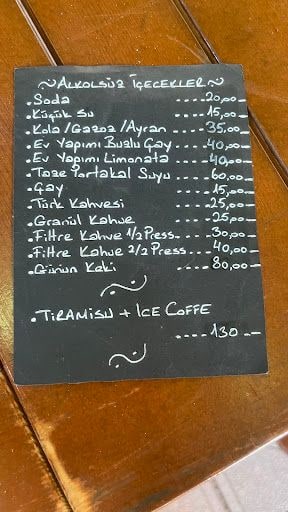 ~ALKOLSÜZ İÇECEKLER~
.Soda ----20,00--
.Küçük Su ----15,00--
.Kola/Gazoz/Ayran ----35,00--
.Ev Yapımı Buzlu Çay ----40,00--
.Ev Yapımı Limonata ----40,00--
.Taze Portakal Suyu ----60,00--
.Çay ----15,00--
.Türk Kahvesi ----25,00--
.Granül Kahve ----25,00--
.Filtre Kahve 1/2 Press ----30,00--
.Filtre Kahve 2/2 Press ----40,00--
.Günün Keki ----80,00--
.TİRAMİSU + ICE COFFE
----130--